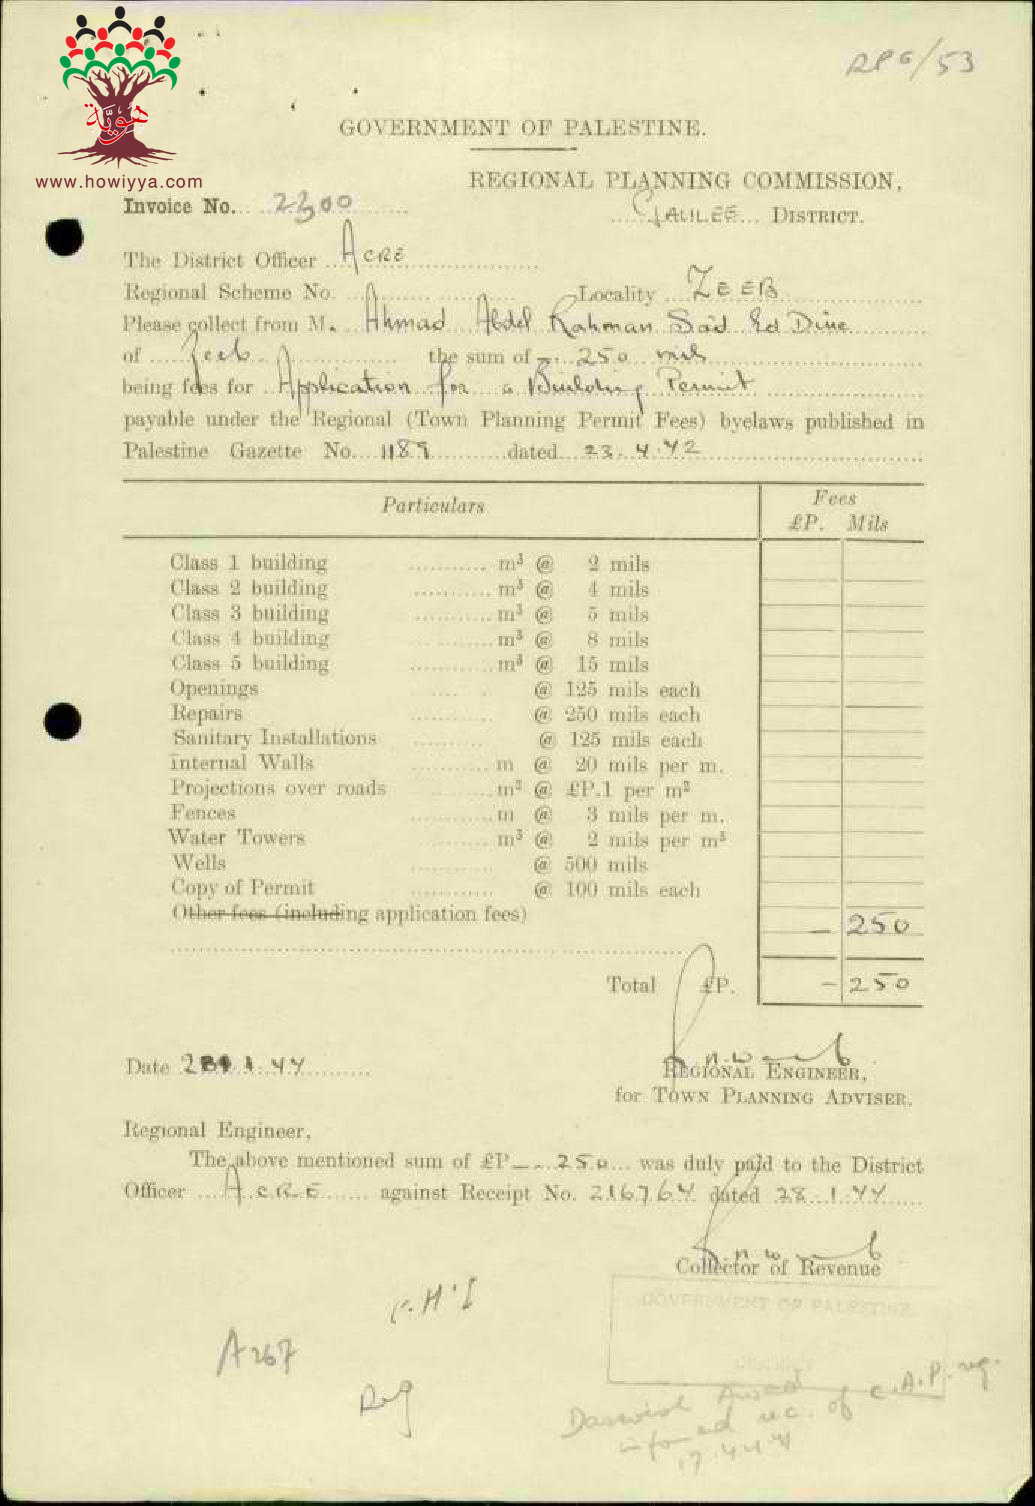 RPG/53
هوية
www.howiyya.com
GOVERNMENT OF PALESTINE.
REGIONAL PLANNING COMMISSION,
Invoice No. 2300
GALILEE DISTRICT.
The District Officer ACRE
Regional Scheme No. Locality ZEEB
Please collect from M. Ahmad Abdel Rahman Sa'id Ed Dine
of Zeeb the sum of — 250 mils
being fees for Application for a Building Permit
payable under the Regional (Town Planning Permit Fees) byelaws published in
Palestine Gazette No. 1189 dated 23.4.42
Particulars Fees
£P. Mils
Class 1 building m³ @ 2 mils
Class 2 building m³ @ 4 mils
Class 3 building m³ @ 5 mils
Class 4 building m³ @ 8 mils
Class 5 building m³ @ 15 mils
Openings @ 125 mils each
Repairs @ 250 mils each
Sanitary Installations @ 125 mils each
Internal Walls m @ 20 mils per m.
Projections over roads m² @ £P.1 per m²
Fences m @ 3 mils per m.
Water Towers m³ @ 2 mils per m³
Wells @ 500 mils
Copy of Permit @ 100 mils each
Other fees (including application fees) — 250
Total £P. — 250
Date 1.44
REGIONAL ENGINEER,
for TOWN PLANNING ADVISER.
Regional Engineer,
The above mentioned sum of £P — 250 was duly paid to the District
Officer ACRE against Receipt No. 216764 dated 28.1.44
Collector of Revenue
GOVERNMENT OF PALESTINE
DISTRICT
A267
Reg
Darwish Awad of C.A.P. reg.